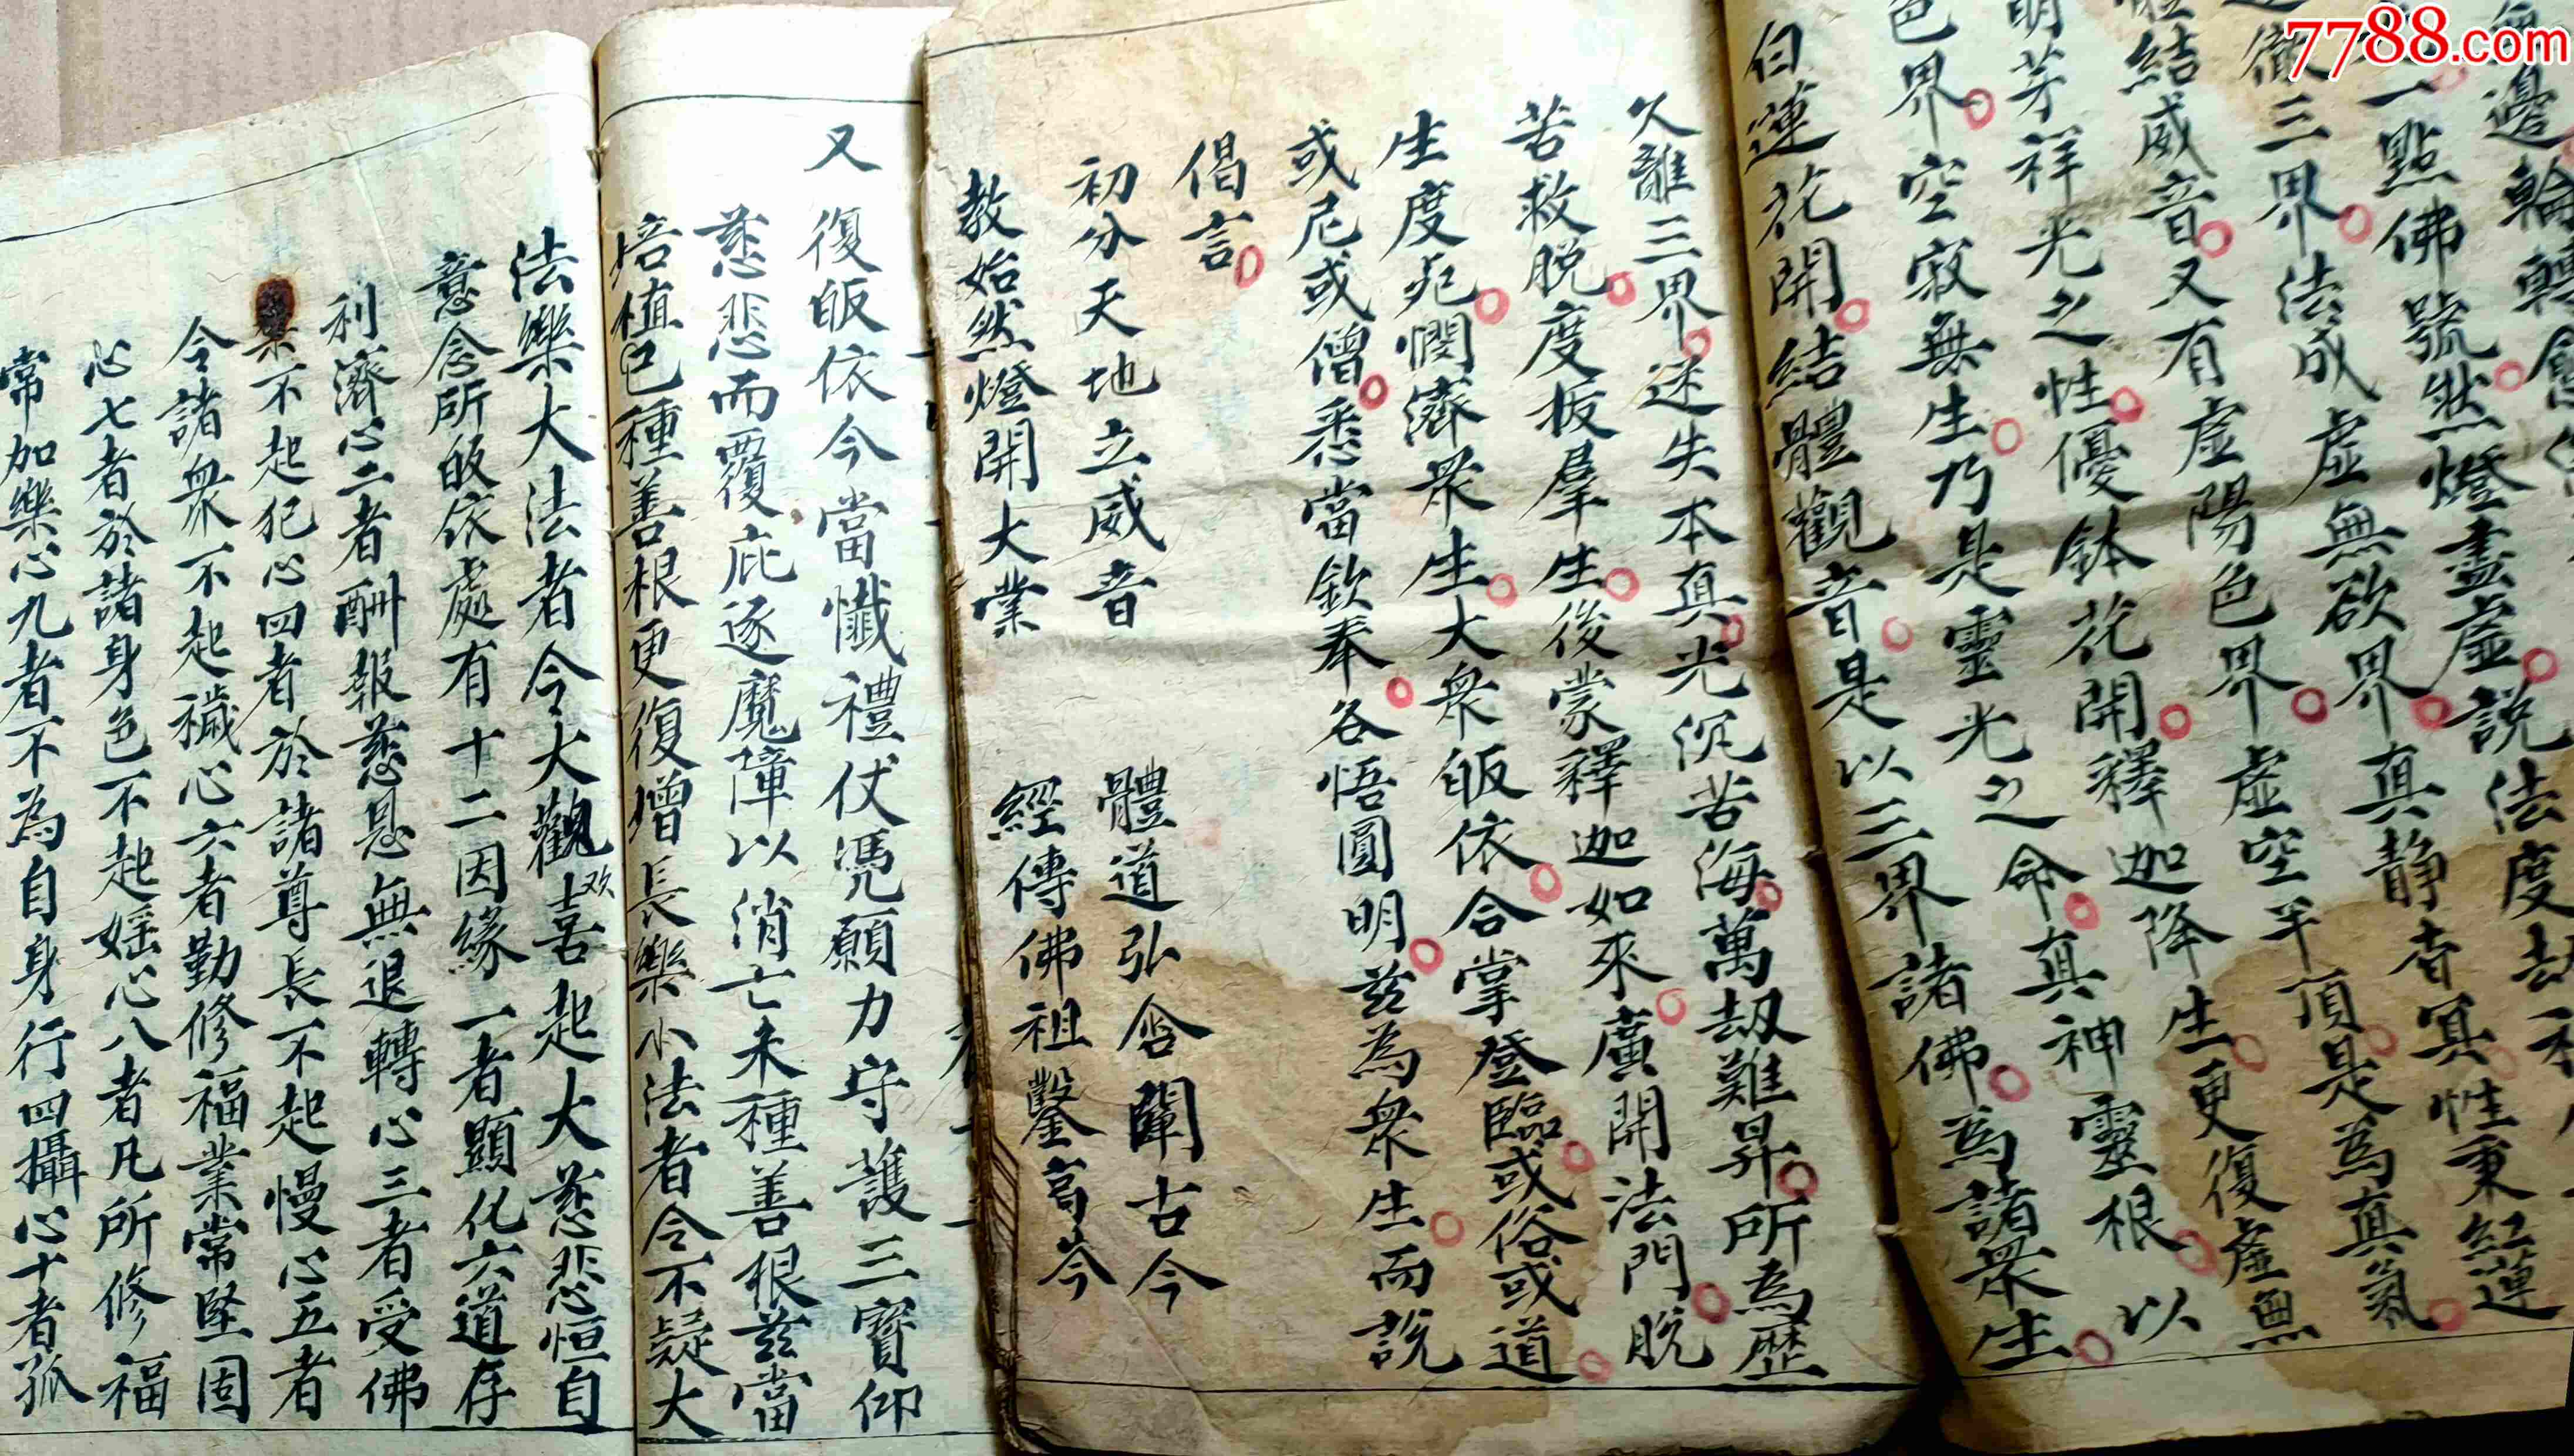 7788.com
無邊輪轉
一點佛號然燈盡虛說法度劫
徹三界法成虛無欲界真静者冥性秉紅蓮
結威音又有虛陽色界虛空半頂是為真氣
明芽祥光之性優鉢花開釋迦降生更復虛無
色界空寂無生乃是靈光之命真神靈根以
白蓮花開結體觀音是以三界諸佛為諸眾生
久離三界迷失本真光沉苦海萬劫難昇所為歷
苦救脫度扳羣生後蒙釋迦如來廣開法門脫
生度死憫濟眾生大眾皈依合掌登臨或俗或道
或尼或僧悉當欽奉各悟圓明茲為眾生而說
偈言
初分天地立威音 體道弘含闡古今
教始然燈開大業 經傳佛祖鑿高岑
又復皈依今當懺禮仗憑願力守護三寶仰
慈悲而覆庇逐魔障以消亡未種善根茲當
培植已種善根更復增長樂小法者令不疑大
法樂大法者令大觀欢喜起大慈悲恒自
意念所皈依處有十二因緣一者顯化六道存
利濟心二者酬報慈恩無退轉心三者受佛
不起犯心四者於諸尊長不起慢心五者
令諸眾不起穢心六者勤修福業常堅固
心七者於諸身色不起婬心八者凡所修福
常加樂心九者不為自身行四攝心十者孤